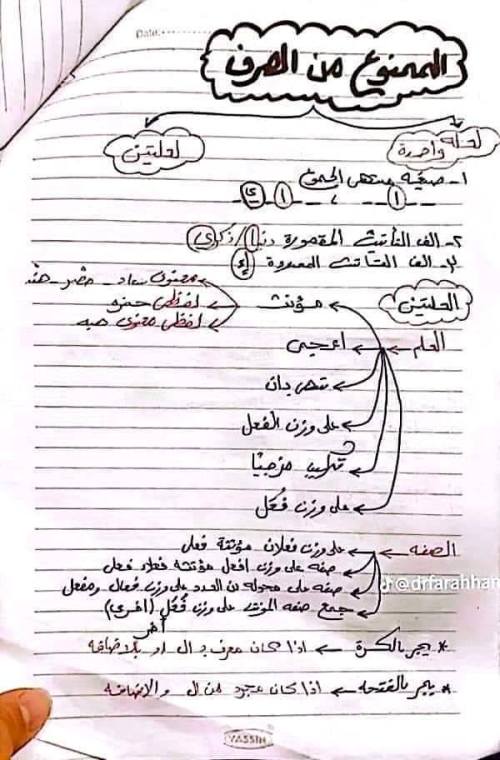 Date:
الممنوع من الصرف
لعلة واحدة
لعلتين
١- صيغة منتهى الجموع
_ _ ا _ _ ، _ _ ا _ ي _
٢- الف التأنيث المقصورة دنيا / ذكرى
٣- الف التأنيث الممدودة اء
العلتين
العلم
مؤنث
معنوي سعاد - مضر - هند
لفظي حمزه
لفظي معنوي
اعجمي
على وزن الفعل
تركيب مزجيًا
على وزن فُعَل
الصفه
على وزن فعلان مؤنثة فعلى
صفه على وزن افعل مؤنثه فعلاء فعلى
صفه على محوله من العدد على وزن فعال ومفعل
جمع صفه المؤنث على وزن فُعَل (اخرى)
أخر
@drfarahhan
* يجر بالكسرة اذا كان معرف بـ ال او بالاضافه
* يجر بالفتحه اذا كان مجرد من ال والاضافه
YASSIN